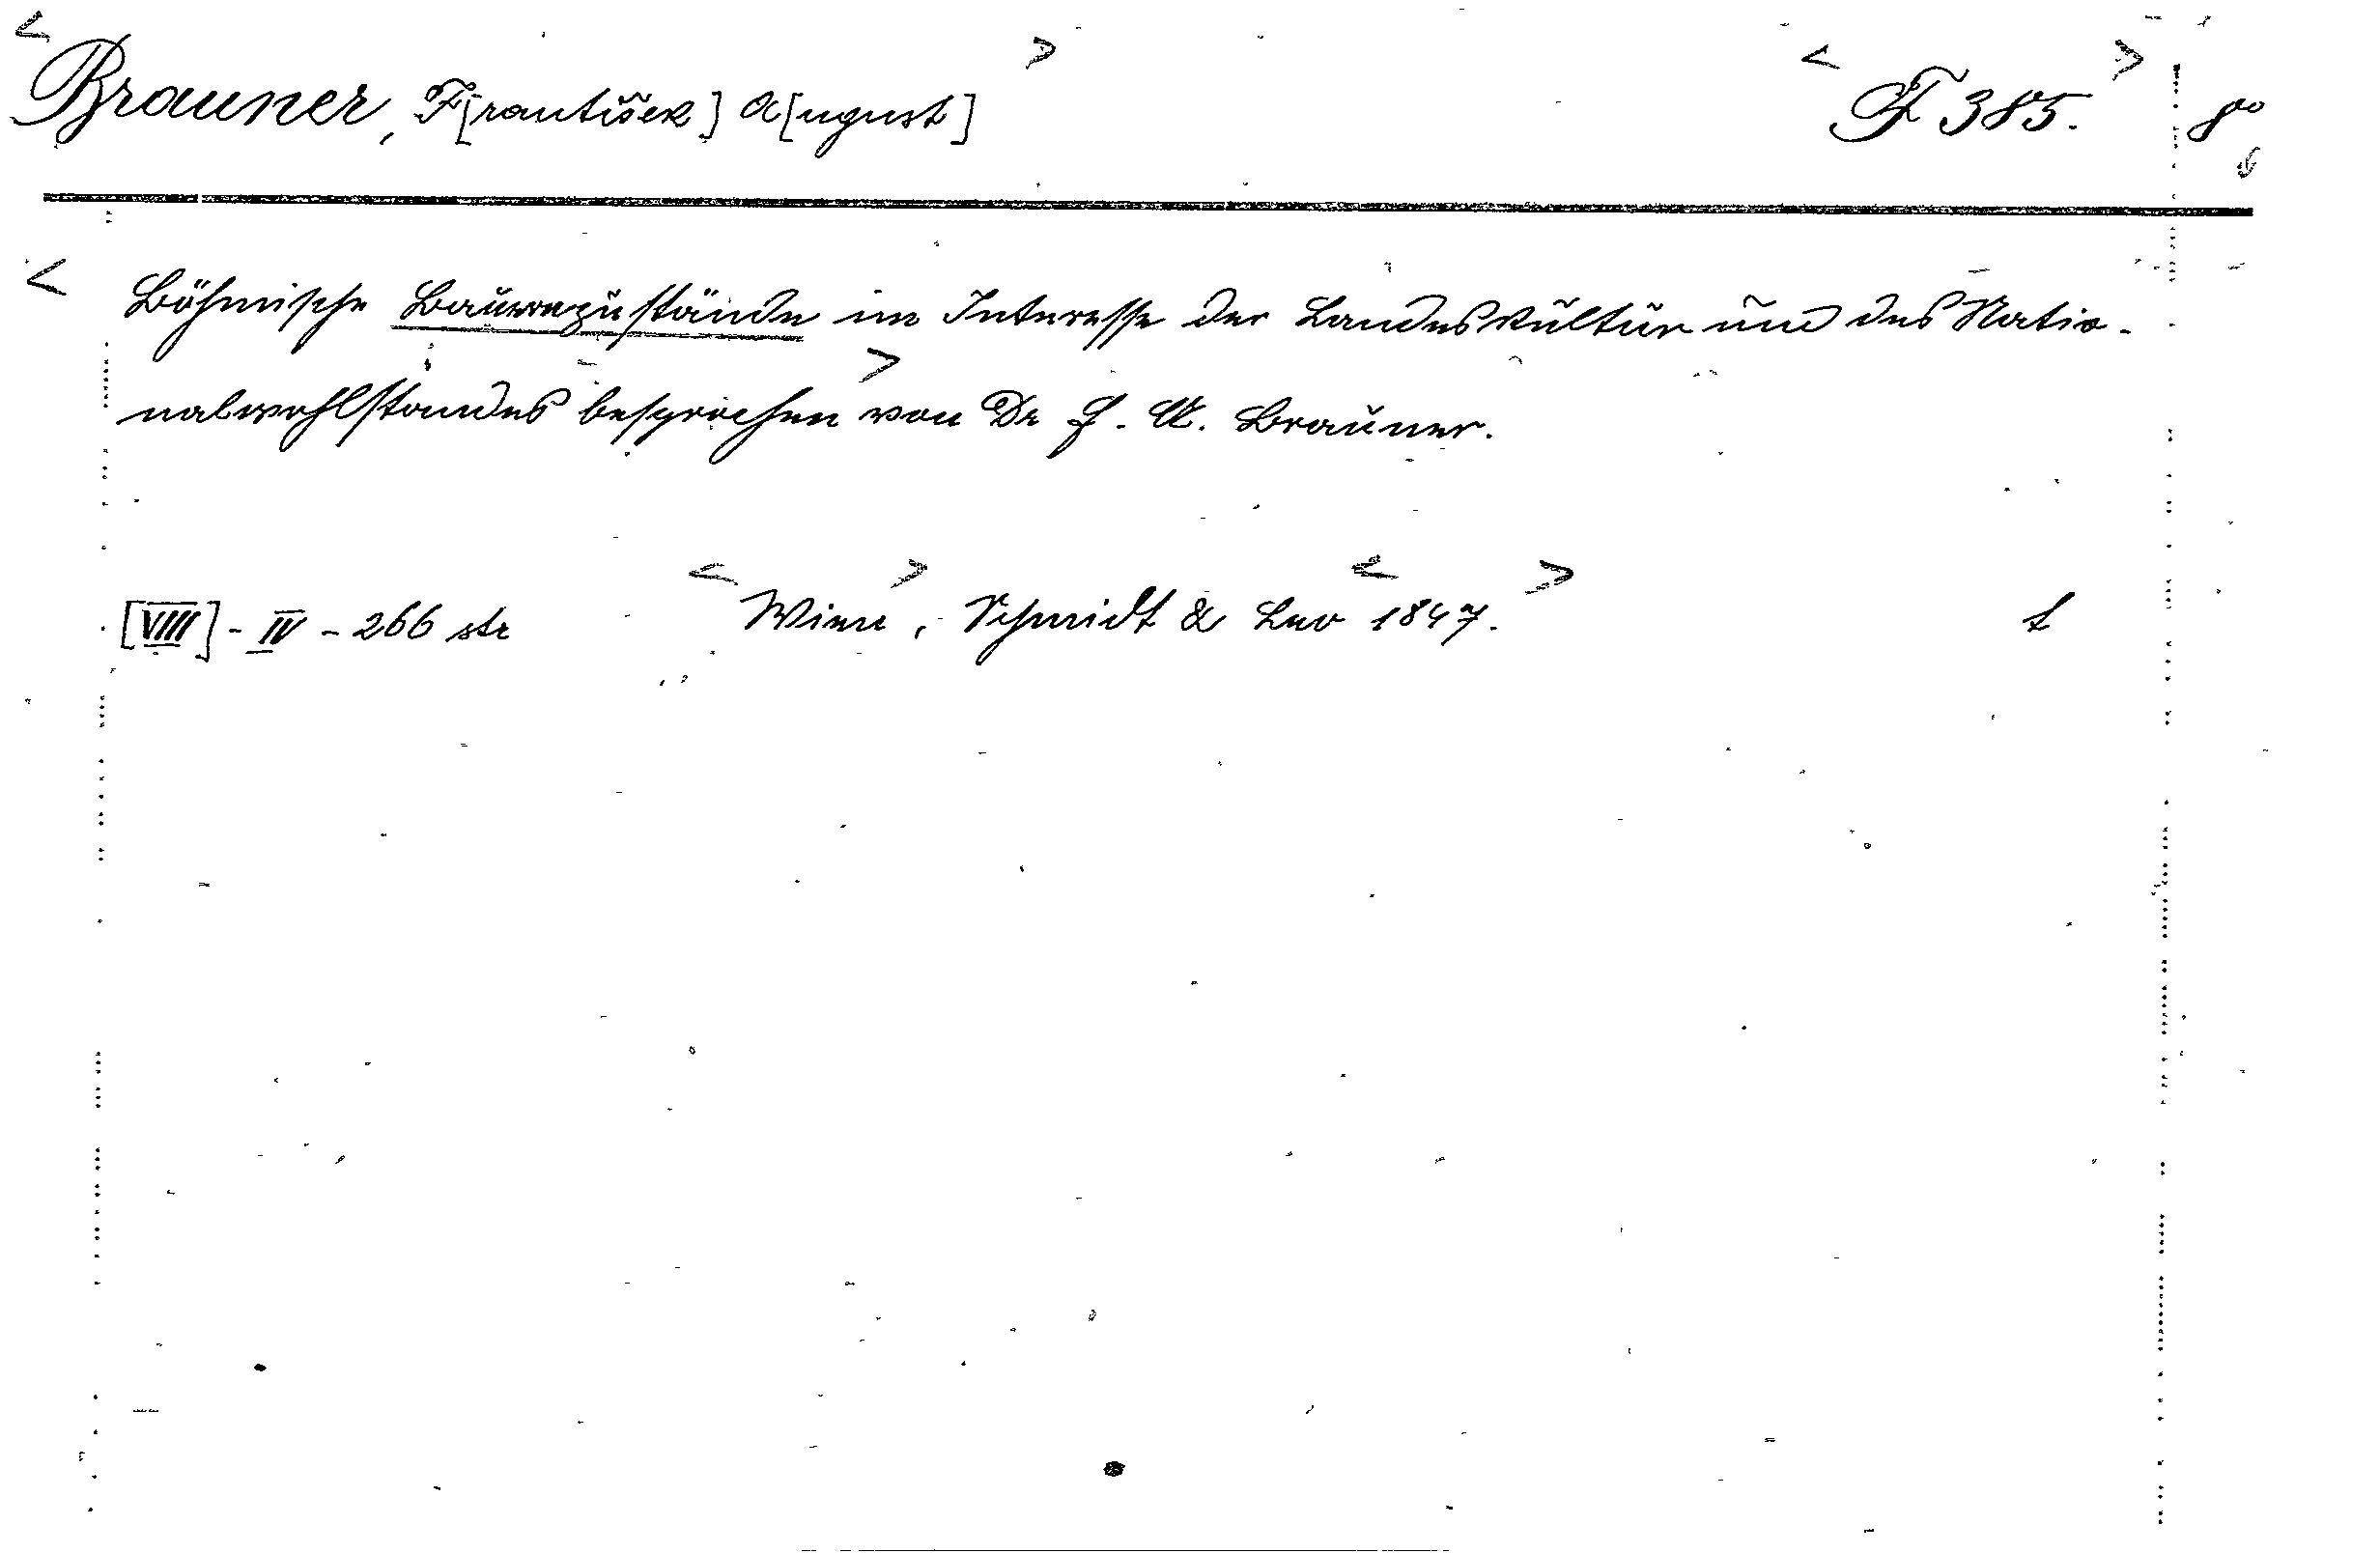 Brauner, F[rantišek] A[ugust] F 385. 8°
Böhmische Bauernzustände im Interesse der Landeskultur und des Natio-
nalwohlstandes besprochen von Dr F. A. Brauner.
[VIII] - IV - 266 str Wien, Schmidt & Leo 1847.